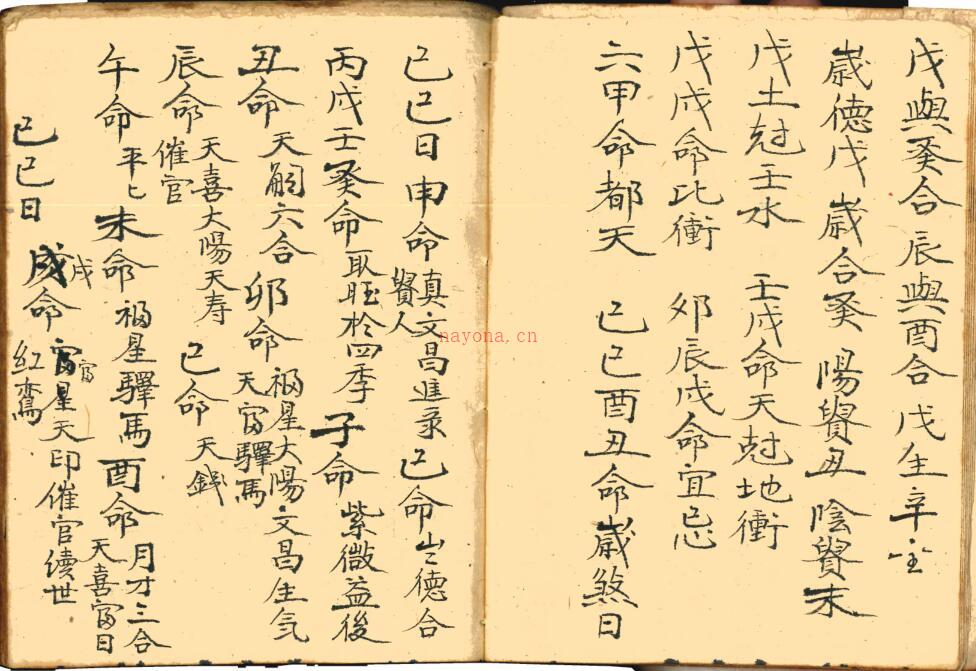 戊與癸合 辰與酉合 戊生辛金
歲德戊 歲合癸 陽貴丑 陰貴未
戊土尅壬水 壬戌命天尅地衝
戊戌命比衝 卯辰戌命宜忌
六甲命都天 己巳酉丑命歲煞日
己巳日 申命 真文昌進彔 己命 歲德合
貴人
丙戌壬癸命 取旺於四季 子命 紫微益後
丑命 天嗣六合 卯命 福星大陽文昌生氣
天富驛馬
辰命 天喜大陽天寿 巳命 天錢
催官
午命 平匕 未命 福星驛馬 酉命 月才三合
天喜富日
己巳日 戌命 富星天印催官續世
戌 富
紅鸞
nayona.cn